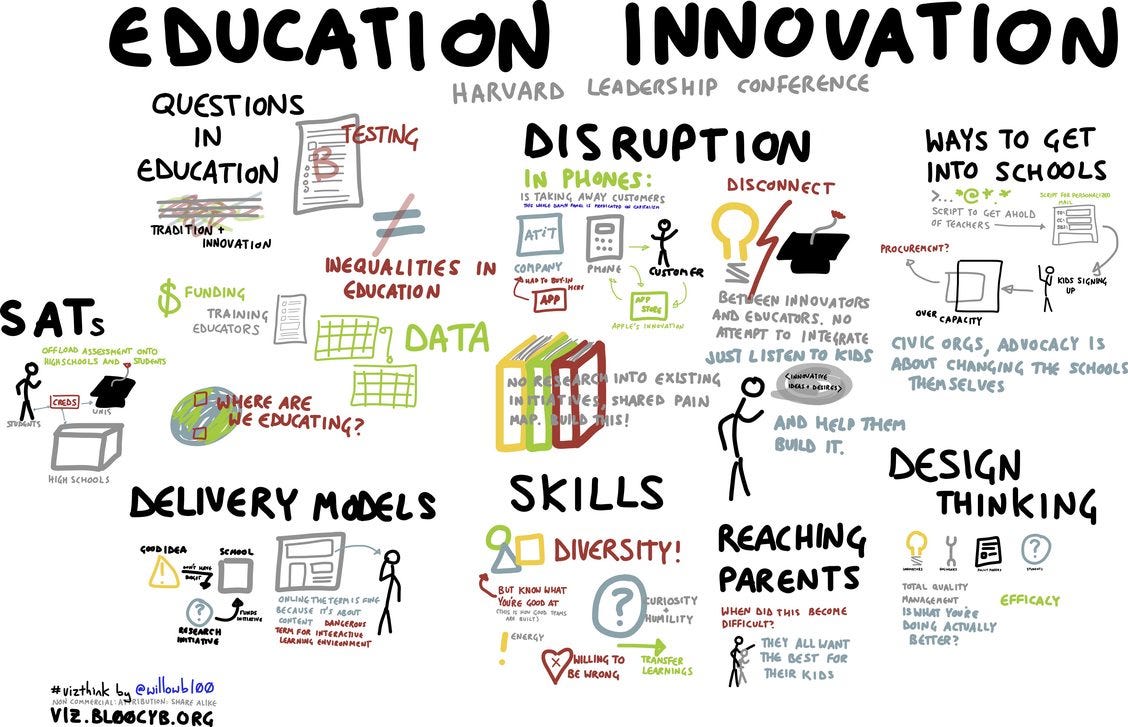 EDUCATION INNOVATION
HARVARD LEADERSHIP CONFERENCE
QUESTIONS
IN
EDUCATION
TRADITION +
INNOVATION
B
TESTING
INEQUALITIES IN
EDUCATION
$ FUNDING
TRAINING
EDUCATORS
DATA
WHERE ARE
WE EDUCATING?
SATs
OFFLOAD ASSESSMENT ONTO
HIGHSCHOOLS AND STUDENTS
CREDS
STUDENTS
UNIS
HIGH SCHOOLS
DISRUPTION
IN PHONES:
IS TAKING AWAY CUSTOMERS
THIS WHOLE DAMN PANEL IS PREDICATED ON CAPITALISM
AT&T
COMPANY
PHONE
CUSTOMER
HAD TO BUY-IN
HERE
APP
APP
STORE
APPLE'S INNOVATION
NO RESEARCH INTO EXISTING
INITIATIVES, SHARED PAIN
MAP. BUILD THIS!
DISCONNECT
BETWEEN INNOVATORS
AND EDUCATORS. NO
ATTEMPT TO INTEGRATE
JUST LISTEN TO KIDS
<INNOVATIVE
IDEAS + DESIRES>
AND HELP THEM
BUILD IT.
WAYS TO GET
INTO SCHOOLS
>... *@ * . *
SCRIPT TO GET AHOLD
OF TEACHERS
SCRIPT FOR PERSONALIZED
MAIL
TO:
CC:
SUBJ:
PROCUREMENT?
KIDS SIGNING
UP
OVER CAPACITY
CIVIC ORGS, ADVOCACY IS
ABOUT CHANGING THE SCHOOLS
THEMSELVES
DELIVERY MODELS
GOOD IDEA
SCHOOL
DON'T HAVE
BUDGET
FUNDS
INITIATIVE
RESEARCH
INITIATIVE
?
ONLINE THE TERM IS FINE
BECAUSE IT'S ABOUT
CONTENT DANGEROUS
TERM FOR INTERACTIVE
LEARNING ENVIRONMENT
SKILLS
DIVERSITY!
BUT KNOW WHAT
YOU'RE GOOD AT
(THIS IS HOW GOOD TEAMS
ARE BUILT)
?
CURIOSITY
+
HUMILITY
! ENERGY
X
WILLING TO
BE WRONG
TRANSFER
LEARNINGS
REACHING
PARENTS
WHEN DID THIS BECOME
DIFFICULT?
THEY ALL WANT
THE BEST FOR
THEIR KIDS
DESIGN
THINKING
?
INNOVATORS
ENGINEERS
POLICY MAKERS
STUDENTS
TOTAL QUALITY
MANAGEMENT
IS WHAT YOU'RE
DOING ACTUALLY
BETTER?
EFFICACY
#vizthink by @willowbl00
NON COMMERCIAL: ATTRIBUTION: SHARE ALIKE
VIZ.BL00CYB.ORG